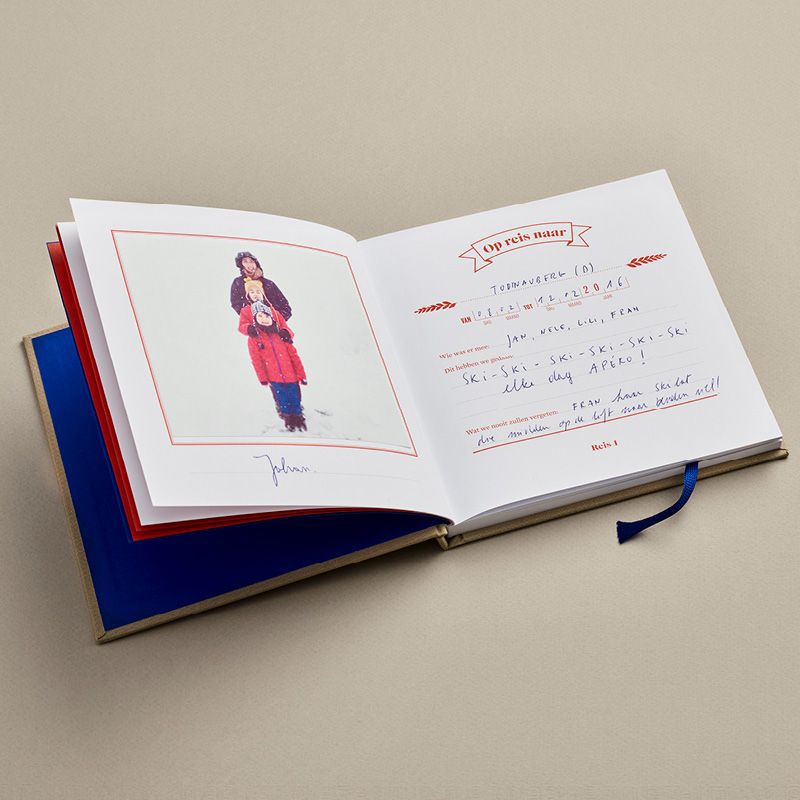 Johan.
Op reis naar
TODTNAUBERG (D)
VAN 08.02 TOT 12.02 2016
DAG MAAND DAG MAAND JAAR
Wie was er mee: JAN, NELE, LILI, FRAN
Dit hebben we gedaan:
SKi-SKi-SKi-SKi-SKi-SKi
elke dag APÉRO!
Wat we nooit zullen vergeten: FRAN haar ski lat
die midden op de lift naar beneden viel!
Reis 1